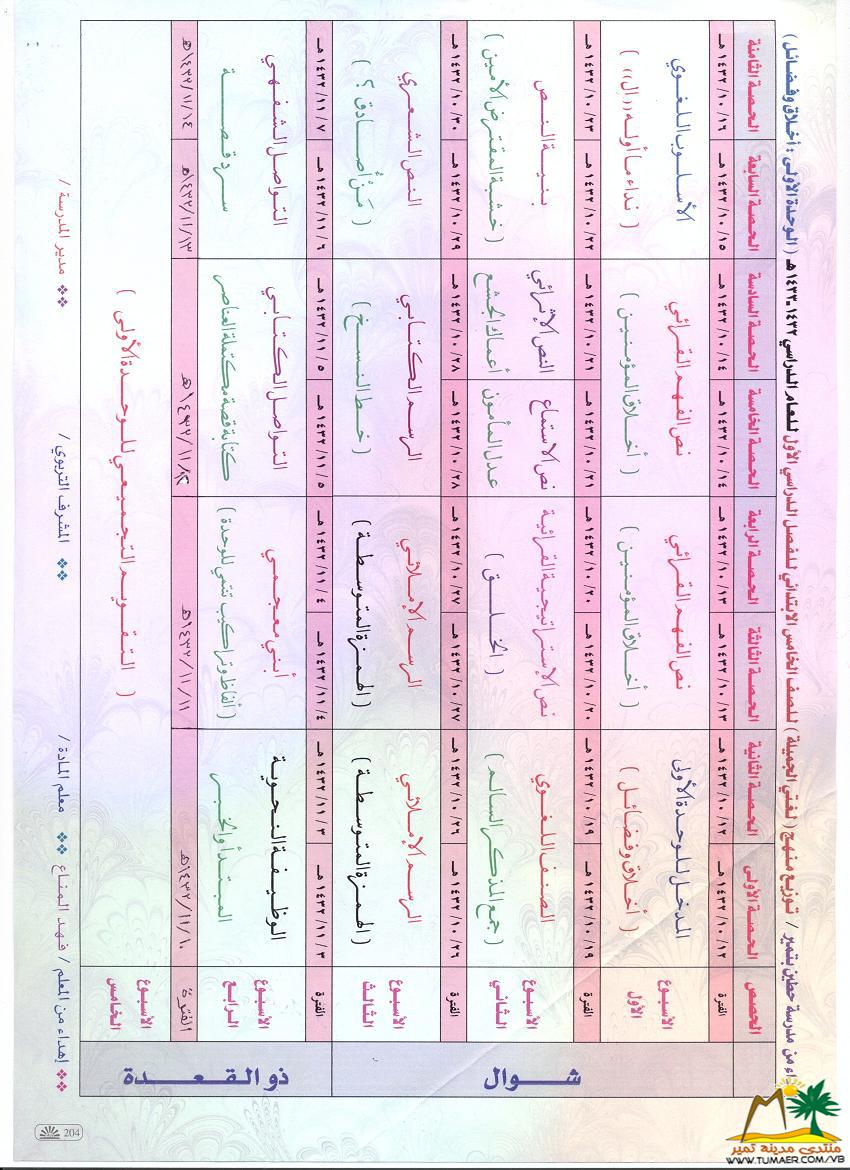 اء من مدرسة حطين بتمير / توزيع منهج ( لغتي الجميلة ) للصف الخامس الابتدائي للفصل الدراسي الأول للعام الدراسي ١٤٣٢-١٤٣٣هـ ( الوحدة الأولى : أخلاق وفضائل )
الحصص الحصة الأولى الحصة الثانية الحصة الثالثة الحصة الرابعة الحصة الخامسة الحصة السادسة الحصة السابعة الحصة الثامنة
شوال
١٢ / ١٠ / ١٤٣٢ هـ ١٢ / ١٠ / ١٤٣٢ هـ ١٣ / ١٠ / ١٤٣٢ هـ ١٣ / ١٠ / ١٤٣٢ هـ ١٤ / ١٠ / ١٤٣٢ هـ ١٤ / ١٠ / ١٤٣٢ هـ ١٥ / ١٠ / ١٤٣٢ هـ ١٦ / ١٠ / ١٤٣٢ هـ
الأسبوع الأول
المدخل للوحدة الأولى نص الفهم القرائي نص الفهم القرائي الأسلوب اللغوي
( أخلاق وفضائل ) ( أخلاق المؤمنين ) ( أخلاق المؤمنين ) ( نداء ما أوله ((ال)) )
الفترة ١٩ / ١٠ / ١٤٣٢ هـ ١٩ / ١٠ / ١٤٣٢ هـ ٢٠ / ١٠ / ١٤٣٢ هـ ٢٠ / ١٠ / ١٤٣٢ هـ ٢١ / ١٠ / ١٤٣٢ هـ ٢١ / ١٠ / ١٤٣٢ هـ ٢٢ / ١٠ / ١٤٣٢ هـ ٢٣ / ١٠ / ١٤٣٢ هـ
الأسبوع الثاني
الصنف اللغوي نص الإستراتيجية القرائية نص الاستماع النص الإثرائي بنية النص
( جمع المذكر السالم ) ( الخلق ) عدل المأمون أعماك الجشع ( خشبة المقترض الأمين )
الفترة ٢٦ / ١٠ / ١٤٣٢ هـ ٢٦ / ١٠ / ١٤٣٢ هـ ٢٧ / ١٠ / ١٤٣٢ هـ ٢٧ / ١٠ / ١٤٣٢ هـ ٢٨ / ١٠ / ١٤٣٢ هـ ٢٨ / ١٠ / ١٤٣٢ هـ ٢٩ / ١٠ / ١٤٣٢ هـ ٣٠ / ١٠ / ١٤٣٢ هـ
الأسبوع الثالث
الرسم الإملائي الرسم الإملائي الرسم الكتابي النص الشعري
( الهمزة المتوسطة ) ( الهمزة المتوسطة ) ( خط النسخ ) ( مَنْ أصادق ؟ )
ذو القعدة
الفترة ٣ / ١١ / ١٤٣٢ هـ ٣ / ١١ / ١٤٣٢ هـ ٤ / ١١ / ١٤٣٢ هـ ٤ / ١١ / ١٤٣٢ هـ ٥ / ١١ / ١٤٣٢ هـ ٥ / ١١ / ١٤٣٢ هـ ٦ / ١١ / ١٤٣٢ هـ ٧ / ١١ / ١٤٣٢ هـ
الأسبوع الرابع
الوظيفة النحوية أبني معجمي التواصل الكتابي التواصل الشفهي
المبتدأ والخبر ( ألفاظ وتراكيب تنتمي للوحدة ) كتابة قصة مكتملة العناصر سرد قصة
الفترة ١٠ / ١١ / ١٤٣٢هـ ١١ / ١١ / ١٤٣٢هـ ١٤٣٢/١١/هـ ١٣ / ١١ / ١٤٣٢هـ ١٤ / ١١ / ١٤٣٢هـ
الأسبوع الخامس
( التقويم التجميعي للوحدة الأولى )
❖❖ إهداء من المعلم / فهد المناع ❖❖ معلم المادة / ❖❖ المشرف التربوي / ❖❖ مدير المدرسة /
204
منتدى مدينة تمير
WWW.TUMAER.COM/VB